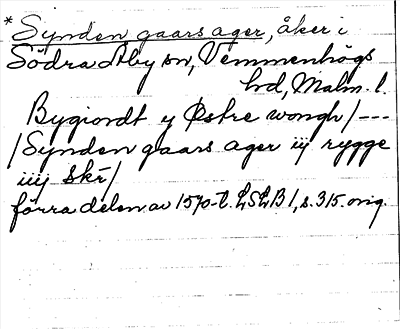 *Synden gaars ager, åker i
Södra Åby sn, Vemmenhögs
hd, Malm. l.
Bygiordt y Østre wongh /---
/Synden gaars ager iij rygge
iiij skr̄/
förra delen av 1570-t. LSLB 1, s. 315. orig.